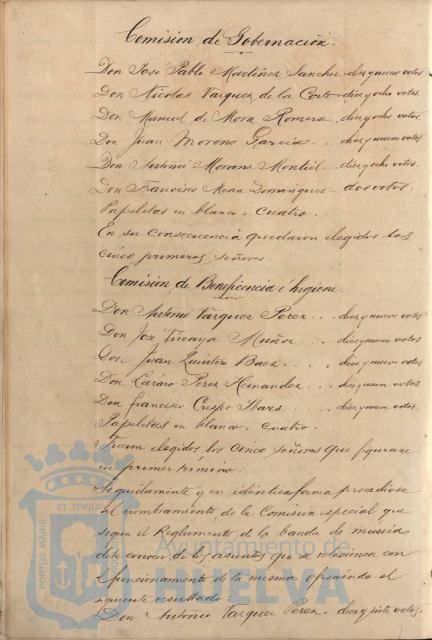 Comision de Gobernación.
Don José Pablo Martinez Sanchez diez y nueve votos
Don Nicolas Vazquez de la Corte diez y ocho votos
Don Manuel de Mora Romero, diez y ocho votos,
Don Juan Moreno García . . diez y nueve votos
Don Antonio Morano Montiel . . diez y ocho votos.
Don Francisco Mora Dominguez - dos votos.
Papeletas en blanco . cuatro.
En su consecuencia quedaron elegidos los
cinco primeros señores
Comision de Beneficencia é higiene.
Don Antonio Vázquez Perez . . diez y nueve votos
Don José Vizcaya Muñoz . . diez y nueve votos
Don Juan Quintero Baez . . diez y nueve votos
Don Lázaro Perez Hernandez . . . diez y nueve votos
Don Francisco Crespo . . . diez y nueve votos.
Papeletas en blanco . cuatro.
Fueron elegidos los cinco señores que figuran
en primer término.
Seguidamente y en idéntica forma procediose
al nombramiento de la Comision especial que
segun el Reglamento de la banda de musica
debe conocer de los asuntos que se relacionen con
el funcionamiento de la misma ofreciendo el
siguiente resultado:
Don Antonio Vazquez Perez . diez y siete votos.
PORTUS MARIS ET TERRAE
Ayuntamiento de
HUELVA